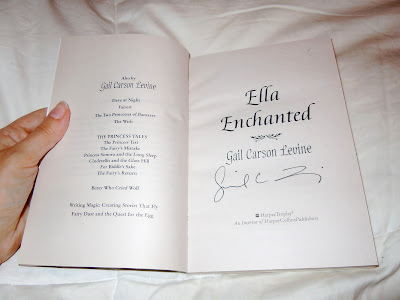 Also by
Gail Carson Levine
Dave at Night
Fairest
The Two Princesses of Bamarre
The Wish
THE PRINCESS TALES
The Princess Test
The Fairy's Mistake
Princess Sonora and the Long Sleep
Cinderellis and the Glass Hill
For Biddle's Sake
The Fairy's Return
Betsy Who Cried Wolf
Writing Magic: Creating Stories That Fly
Fairy Dust and the Quest for the Egg
Ella
Enchanted
Gail Carson Levine
HarperTrophy®
An Imprint of HarperCollinsPublishers